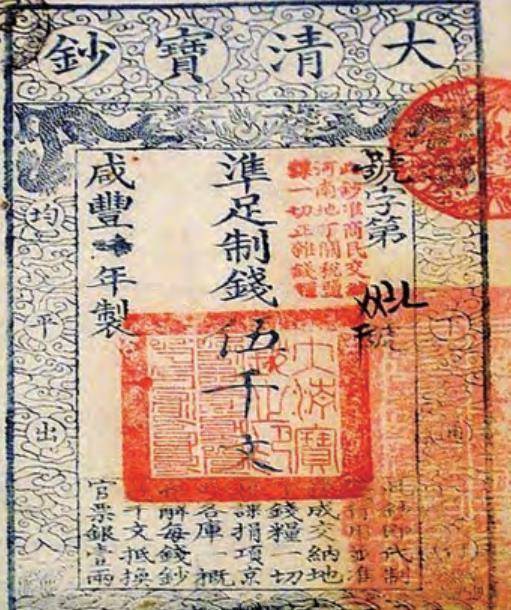 大清寶鈔
號字第
號
此鈔准商民交納
河南地丁關稅鹽
課一切正雜錢糧
準足制錢伍千文
大清寶鈔之印
咸豐年製
均平出入
此鈔即代制
行用並准
成交納地
錢糧一切
課捐項京
各庫一概
解每錢鈔
千文抵換
官票銀壹兩